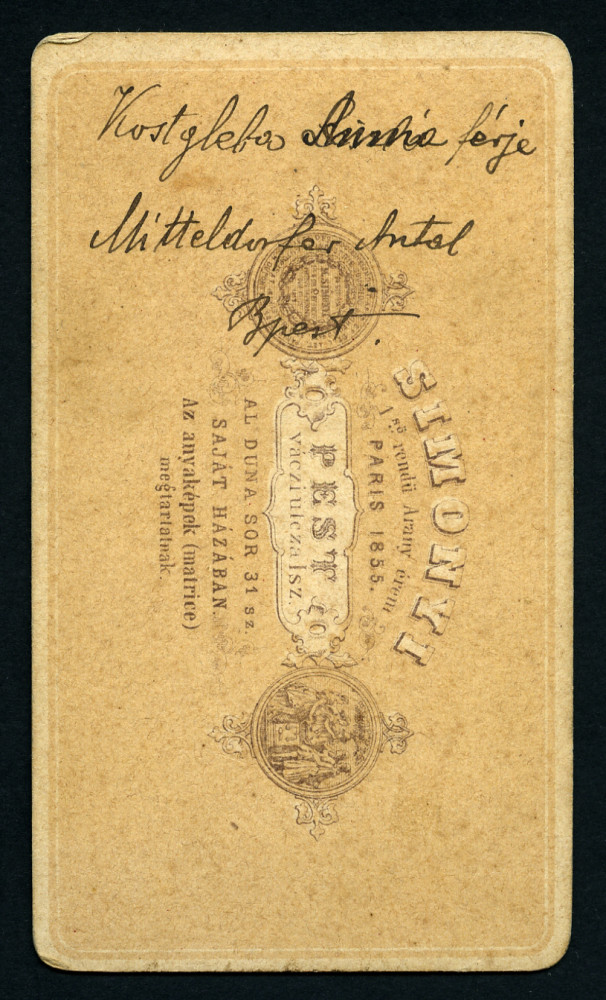 Kostgleba Anna férje
Mitteldorfer Antal
Bpest.
SIMONYI
1ső rendű Arany érem
PARIS 1855.
PEST
váczi utcza 1 sz.
AL DUNA SOR 31 sz.
SAJÁT HÁZÁBAN.
Az anyaképek (matrice)
megtartatnak.